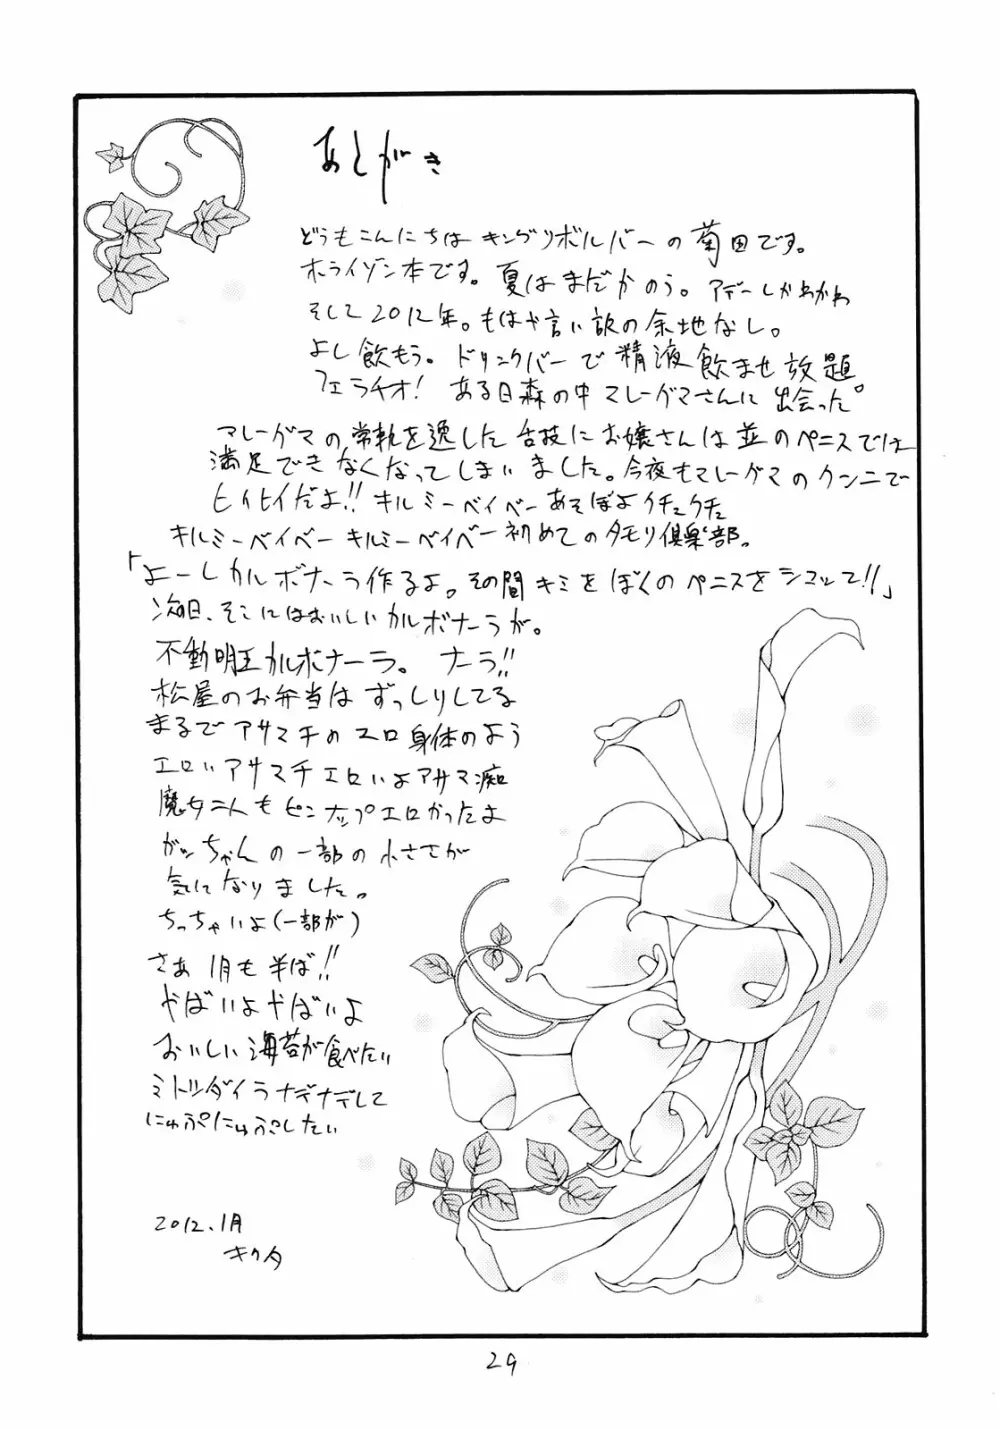 あとがき
どうもこんにちは キングリボルバーの菊田です。
ホライゾン本です。夏はまだかのう。アデーレかわかわ
そして2012年。もはや言い訳の余地なし。
よし飲もう。ドリンクバーで精液飲ませ放題
フェラチオ! ある日森の中マレーグマさんに出会った。
マレーグマの常軌を逸した舌技にお嬢さんは並のペニスでは
満足できなくなってしまいました。今夜もマレーグマのクンニで
ヒィヒィだよ!! キルミーベイベーあそぼよクチュクチュ
キルミーベイベー キルミーベイベー初めてのタモリ倶楽部。
「よーしカルボナーラ作るよ。その間キミをぼくのペニスを シマッて!!」
次の日、そこにはおいしいカルボナーラが。
不動明王カルボナーラ。 ナーラ!!
松屋のお弁当はずっしりしてる
まるでアサマチのエロ身体のよう
エロいアサマチエロいよアサマ痴
魔女二人もピンナップエロかったよ
ガッちゃんの一部の小ささが
気になりました。
ちっちゃいよ(一部が)
さあ 1月も半ば!!
やばいよやばいよ
おいしい海苔が食べたい
ミトツダイラナデナデして
にゅぷにゅぷしたい
2012.1月
キクタ
29